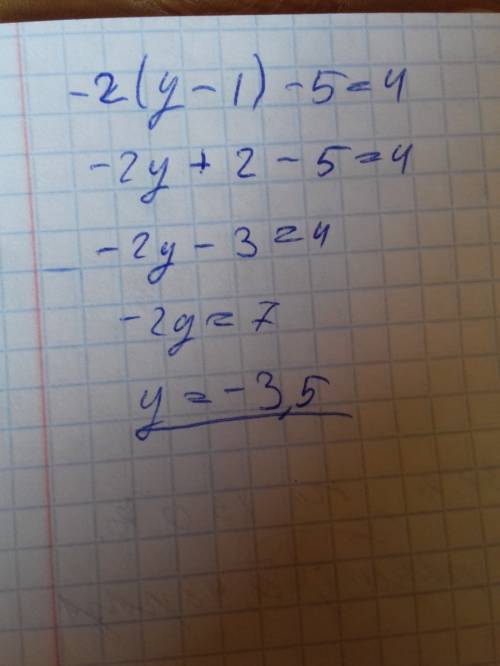 -2(y-1)-5=4
-2y+2-5=4
-2y-3=4
-2y=7
y=-3,5